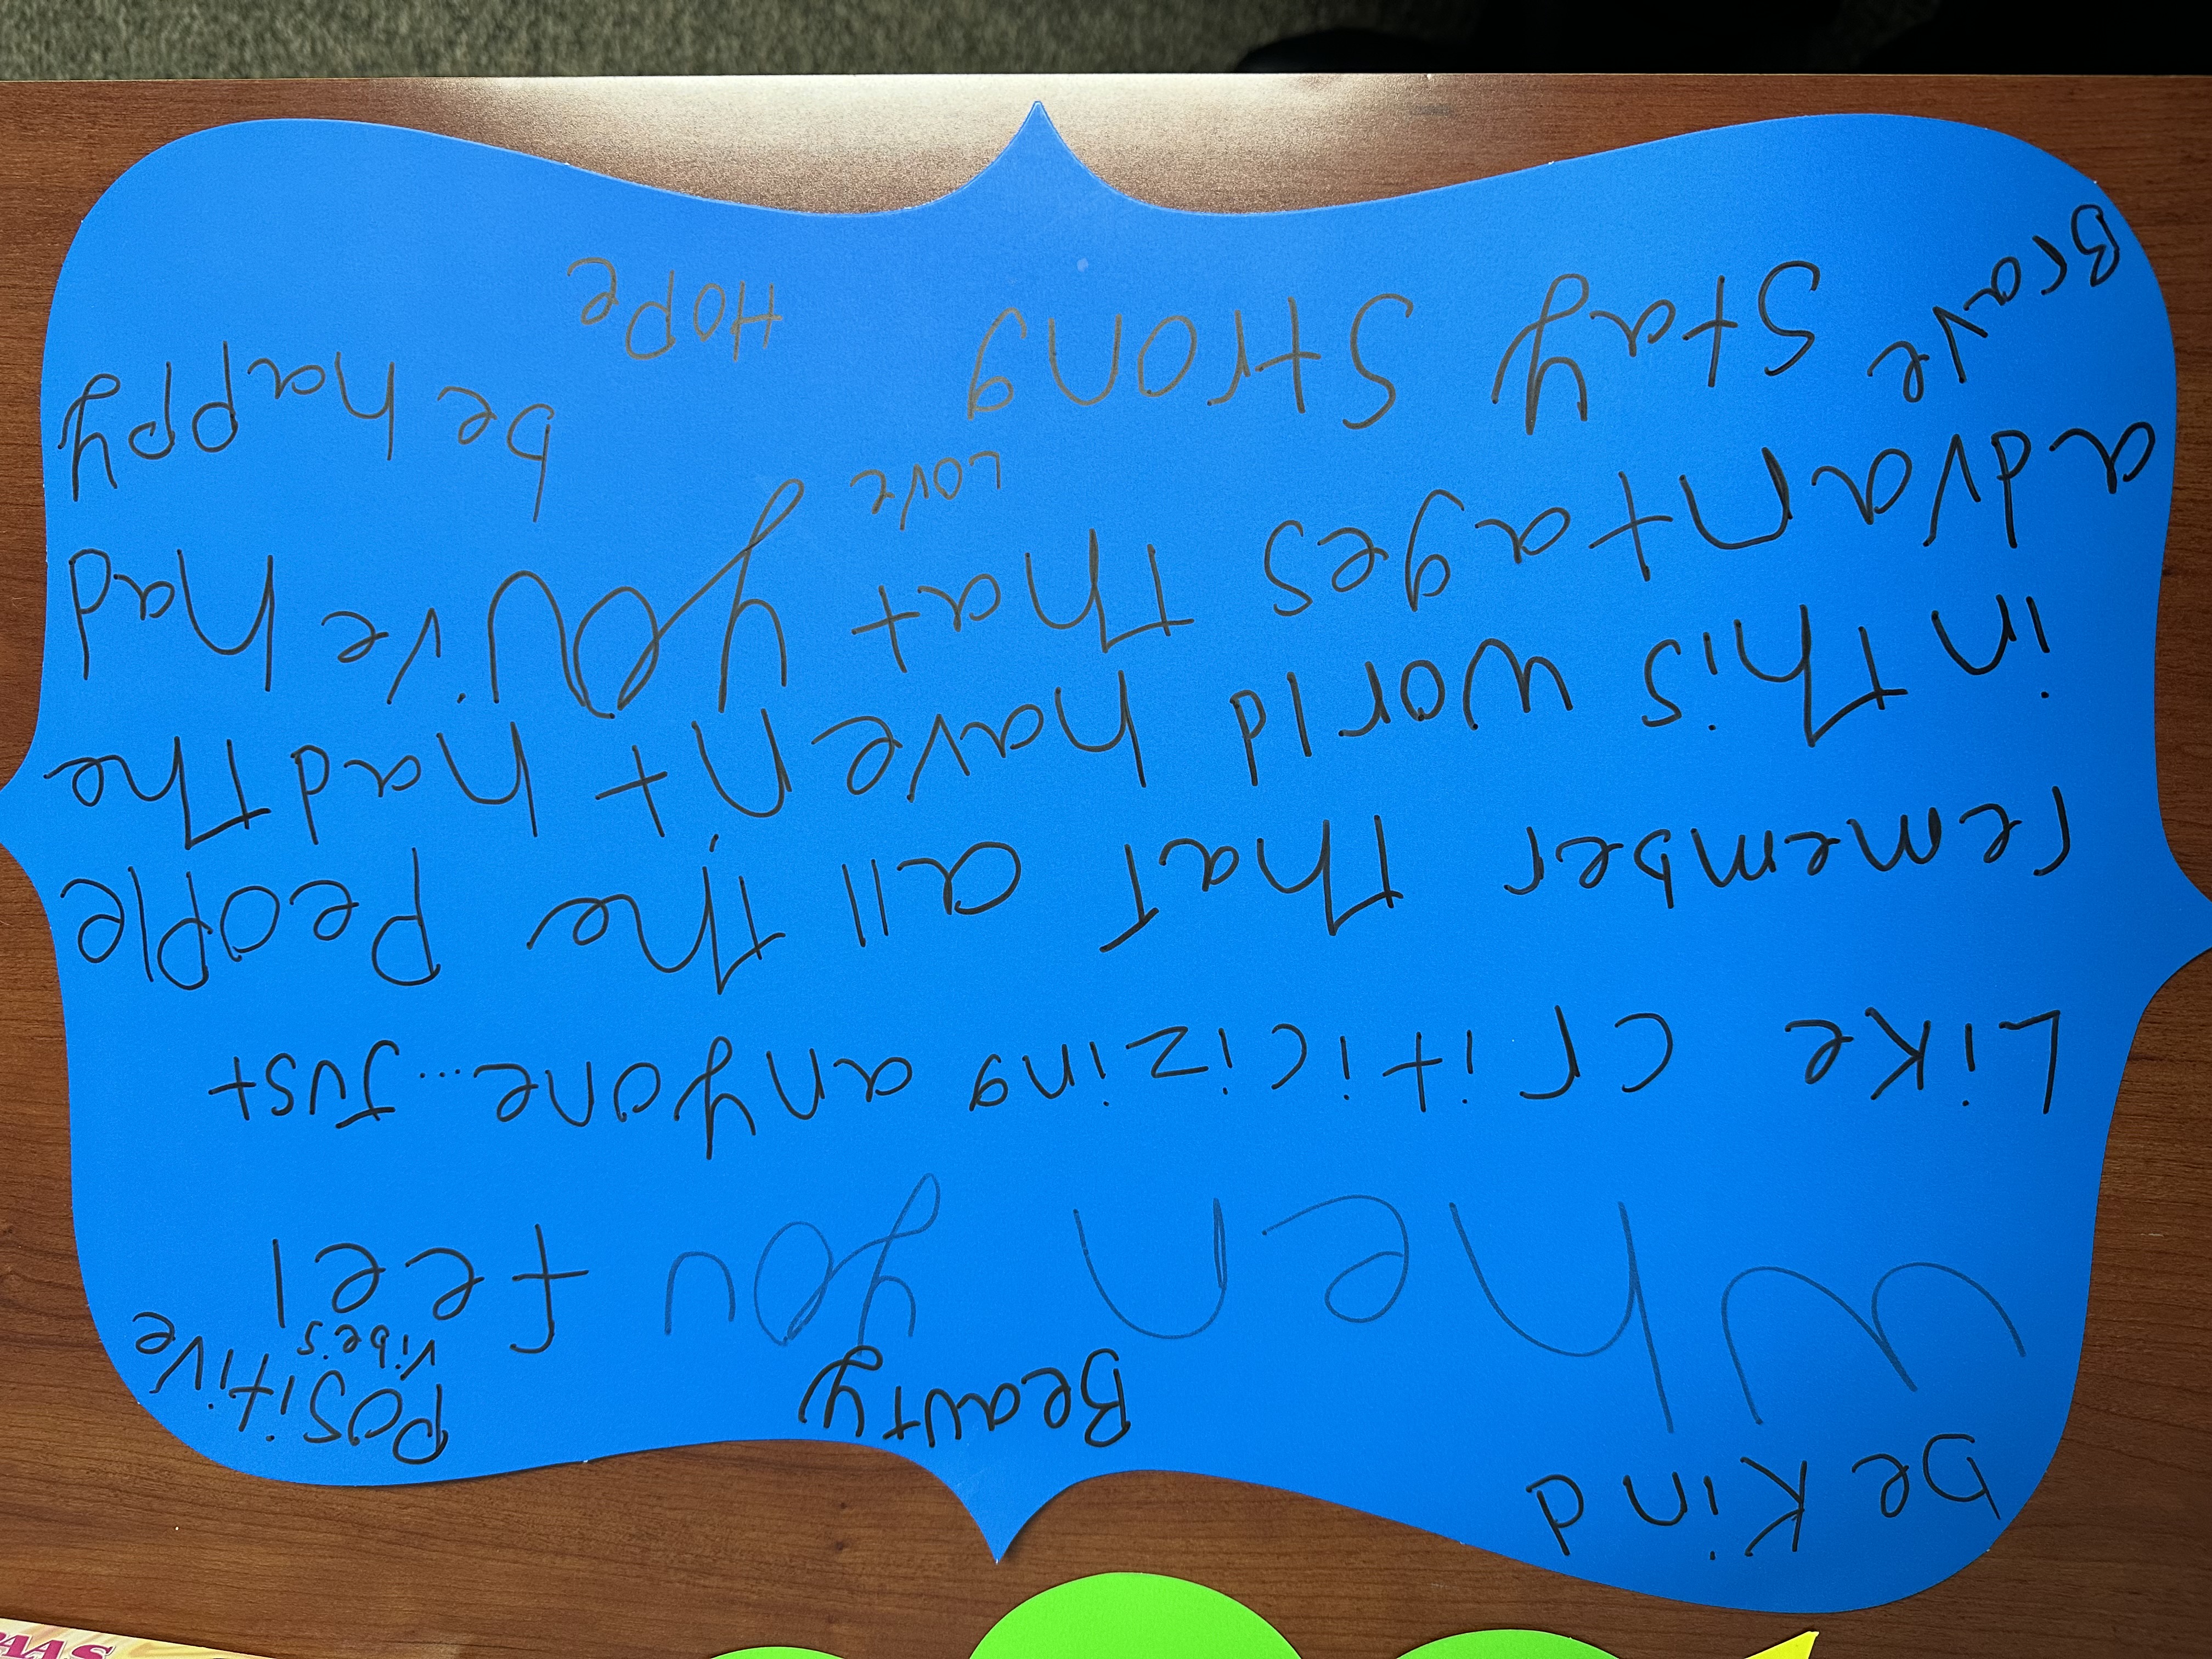 be Kind Beauty Positive
vibe's
When you feel
Like criticizing anyone... Just
remember that all the People
in this world haven't had the
advantages that you've had
Love
Brave Stay Strong be happy
Hope
AAS